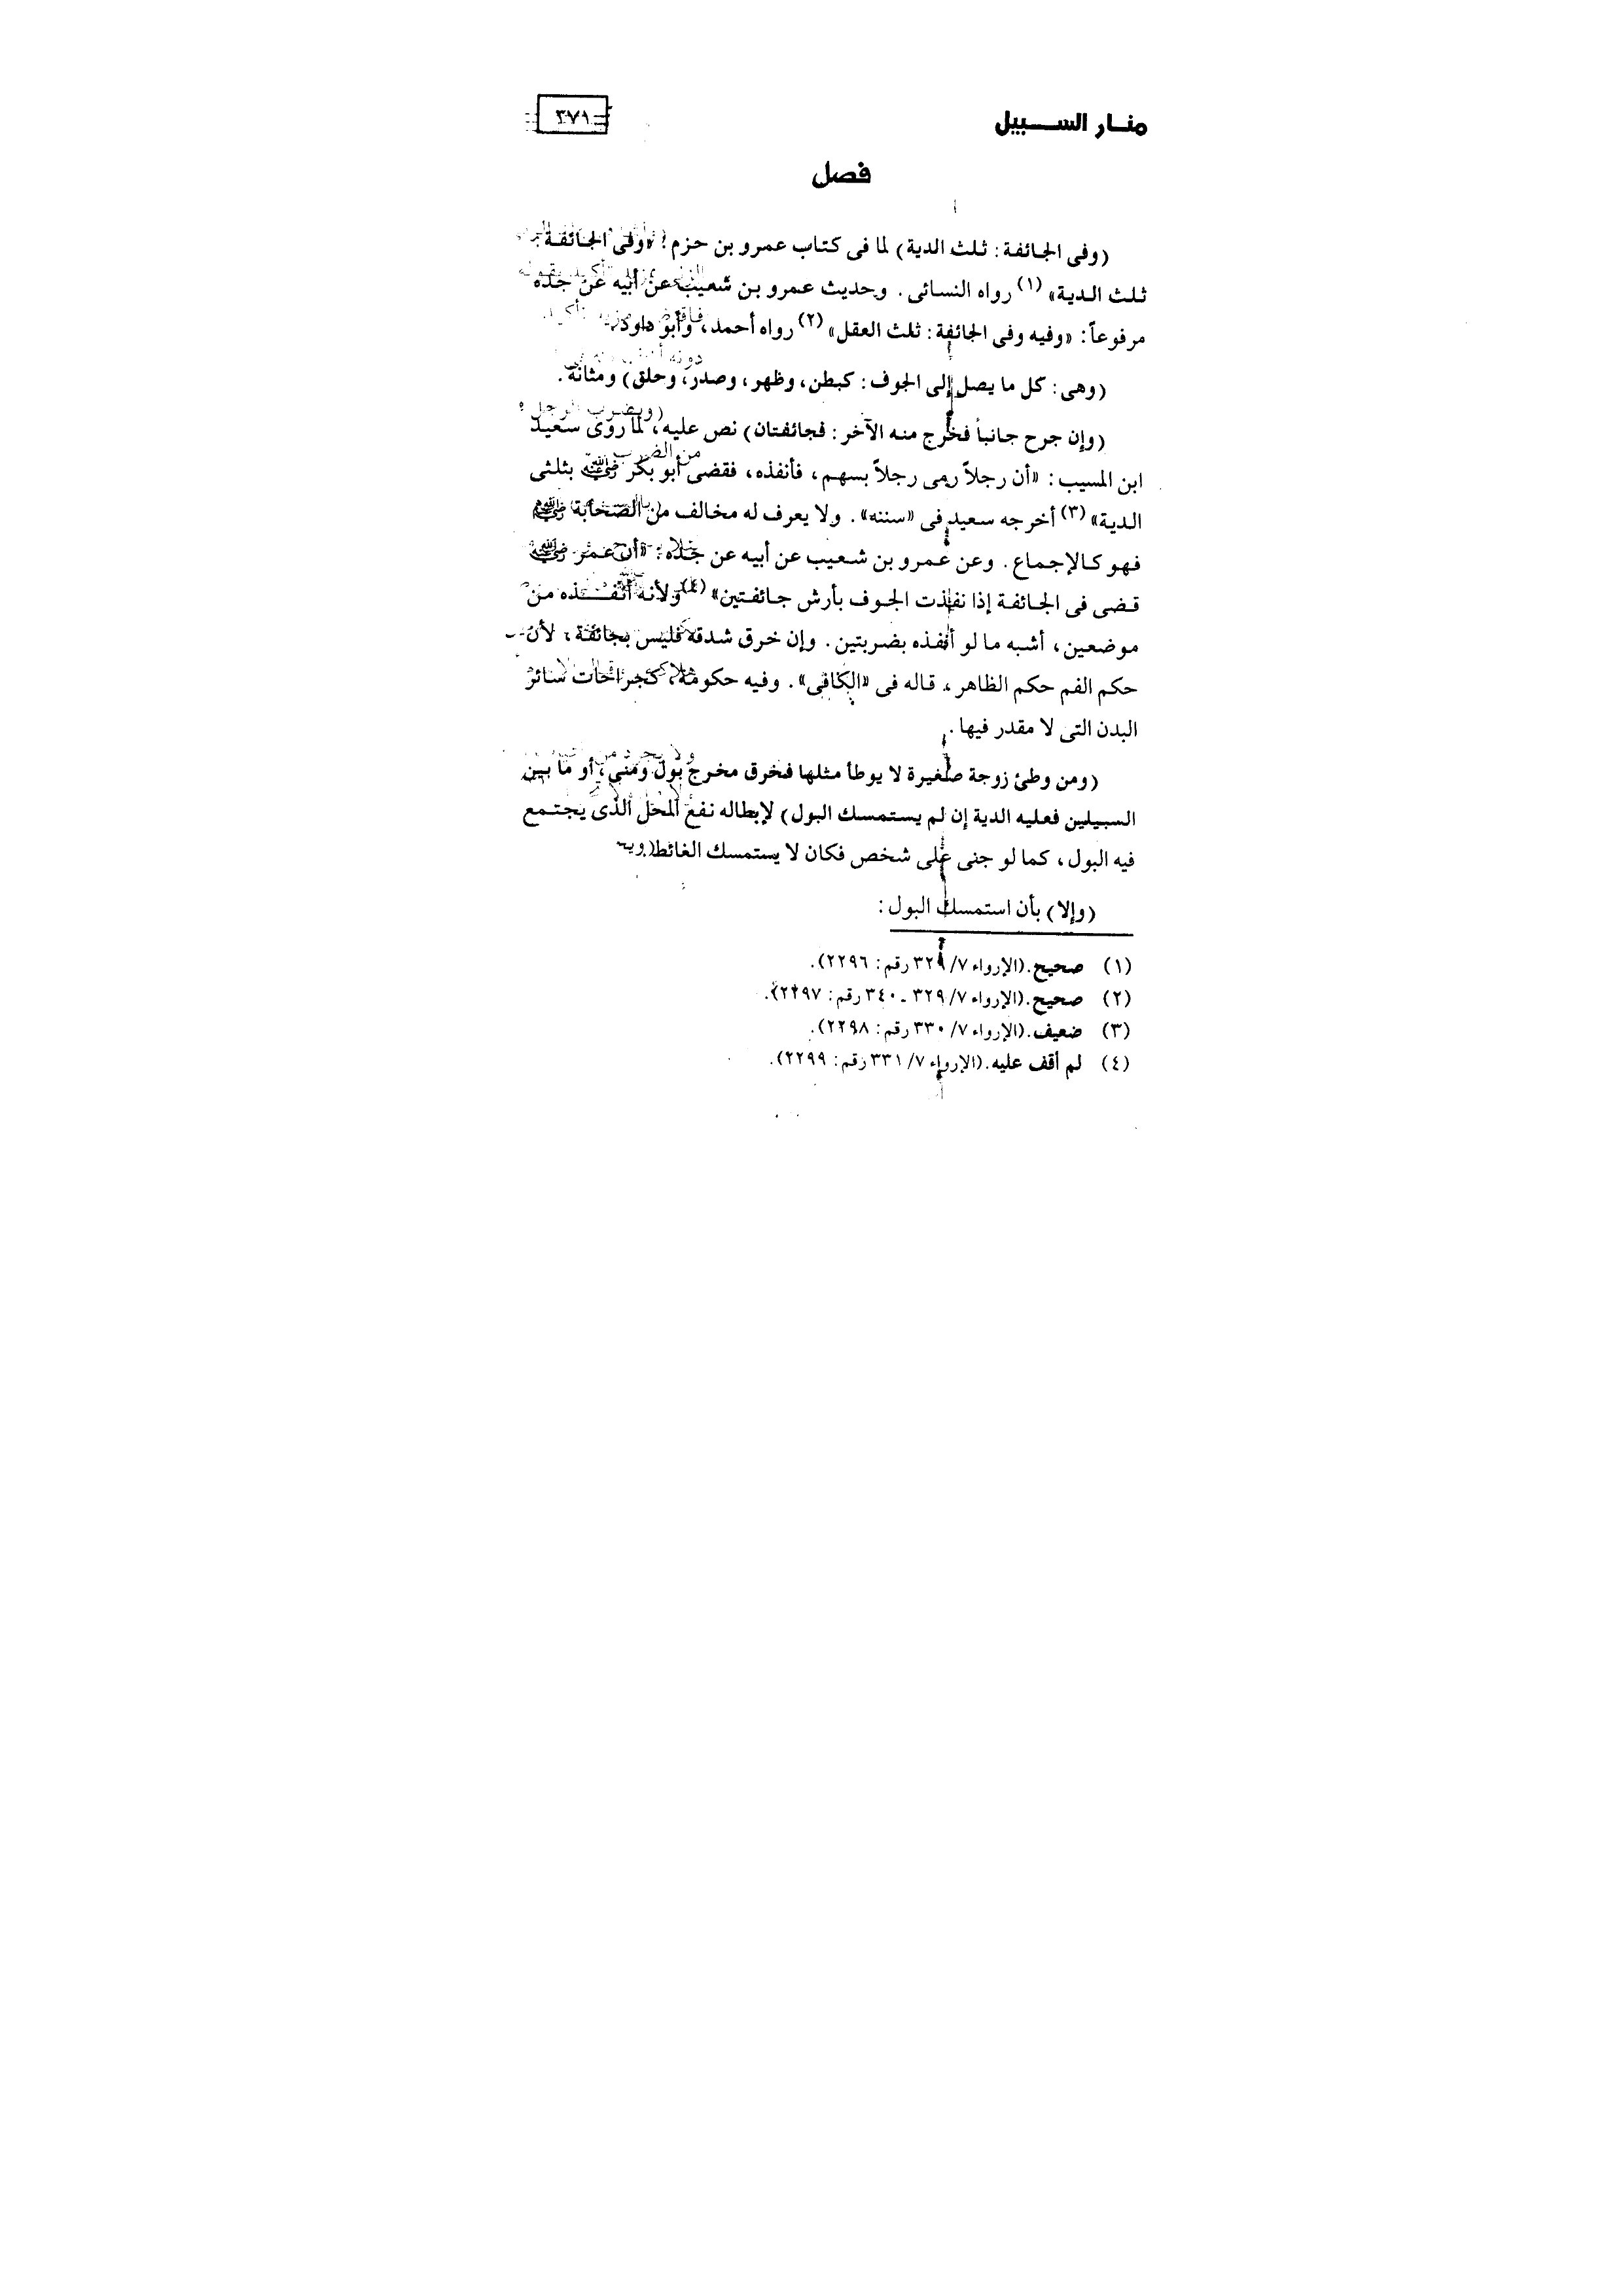 منار السبيل
٣٧١
فصل
(وفى الجائفة: ثلث الدية) لما فى كتاب عمرو بن حزم: «وفى الجائفة
ثلث الدية» (١) رواه النسائى. وحديث عمرو بن شعيب عن أبيه عن جده
مرفوعاً: «وفيه وفى الجائفة: ثلث العقل» (٢) رواه أحمد، وأبو داود.
(وهى: كل ما يصل إلى الجوف: كبطن، وظهر، وصدر، وحلق) ومثانة.
(وإن جرح جانباً فخرج منه الآخر: فجائفتان) نص عليه، لما روى سعيد
ابن المسيب: «أن رجلاً رمى رجلاً بسهم، فأنفذه، فقضى أبو بكر رضي الله عنه بثلثى
الدية» (٣) أخرجه سعيد فى «سننه». ولا يعرف له مخالف من الصحابة رضي الله عنهم
فهو كالإجماع. وعن عمرو بن شعيب عن أبيه عن جده: «أن عمر رضي الله عنه
قضى فى الجائفة إذا نفذت الجوف بأرش جائفتين» (٤) ولأنه أنفذه من
موضعين، أشبه ما لو أنفذه بضربتين. وإن خرق شدقه فليس بجائفة، لأن
حكم الفم حكم الظاهر، قاله فى «الكافى». وفيه حكومة، كجراحات سائر
البدن التى لا مقدر فيها.
(ومن وطئ زوجة صغيرة لا يوطأ مثلها فخرق مخرج بول ومنى، أو ما بين
السبيلين فعليه الدية إن لم يستمسك البول) لإبطاله نفع المحل الذى يجتمع
فيه البول، كما لو جنى على شخص فكان لا يستمسك الغائط
(وإلا) بأن استمسك البول:
(١) صحيح. (الإرواء ٧/ ٣٢٩ رقم: ٢٢٩٦).
(٢) صحيح. (الإرواء ٧/ ٣٢٩ - ٣٤٠ رقم: ٢٢٩٧).
(٣) ضعيف. (الإرواء ٧/ ٣٣٠ رقم: ٢٢٩٨).
(٤) لم أقف عليه. (الإرواء ٧/ ٣٣١ رقم: ٢٢٩٩).